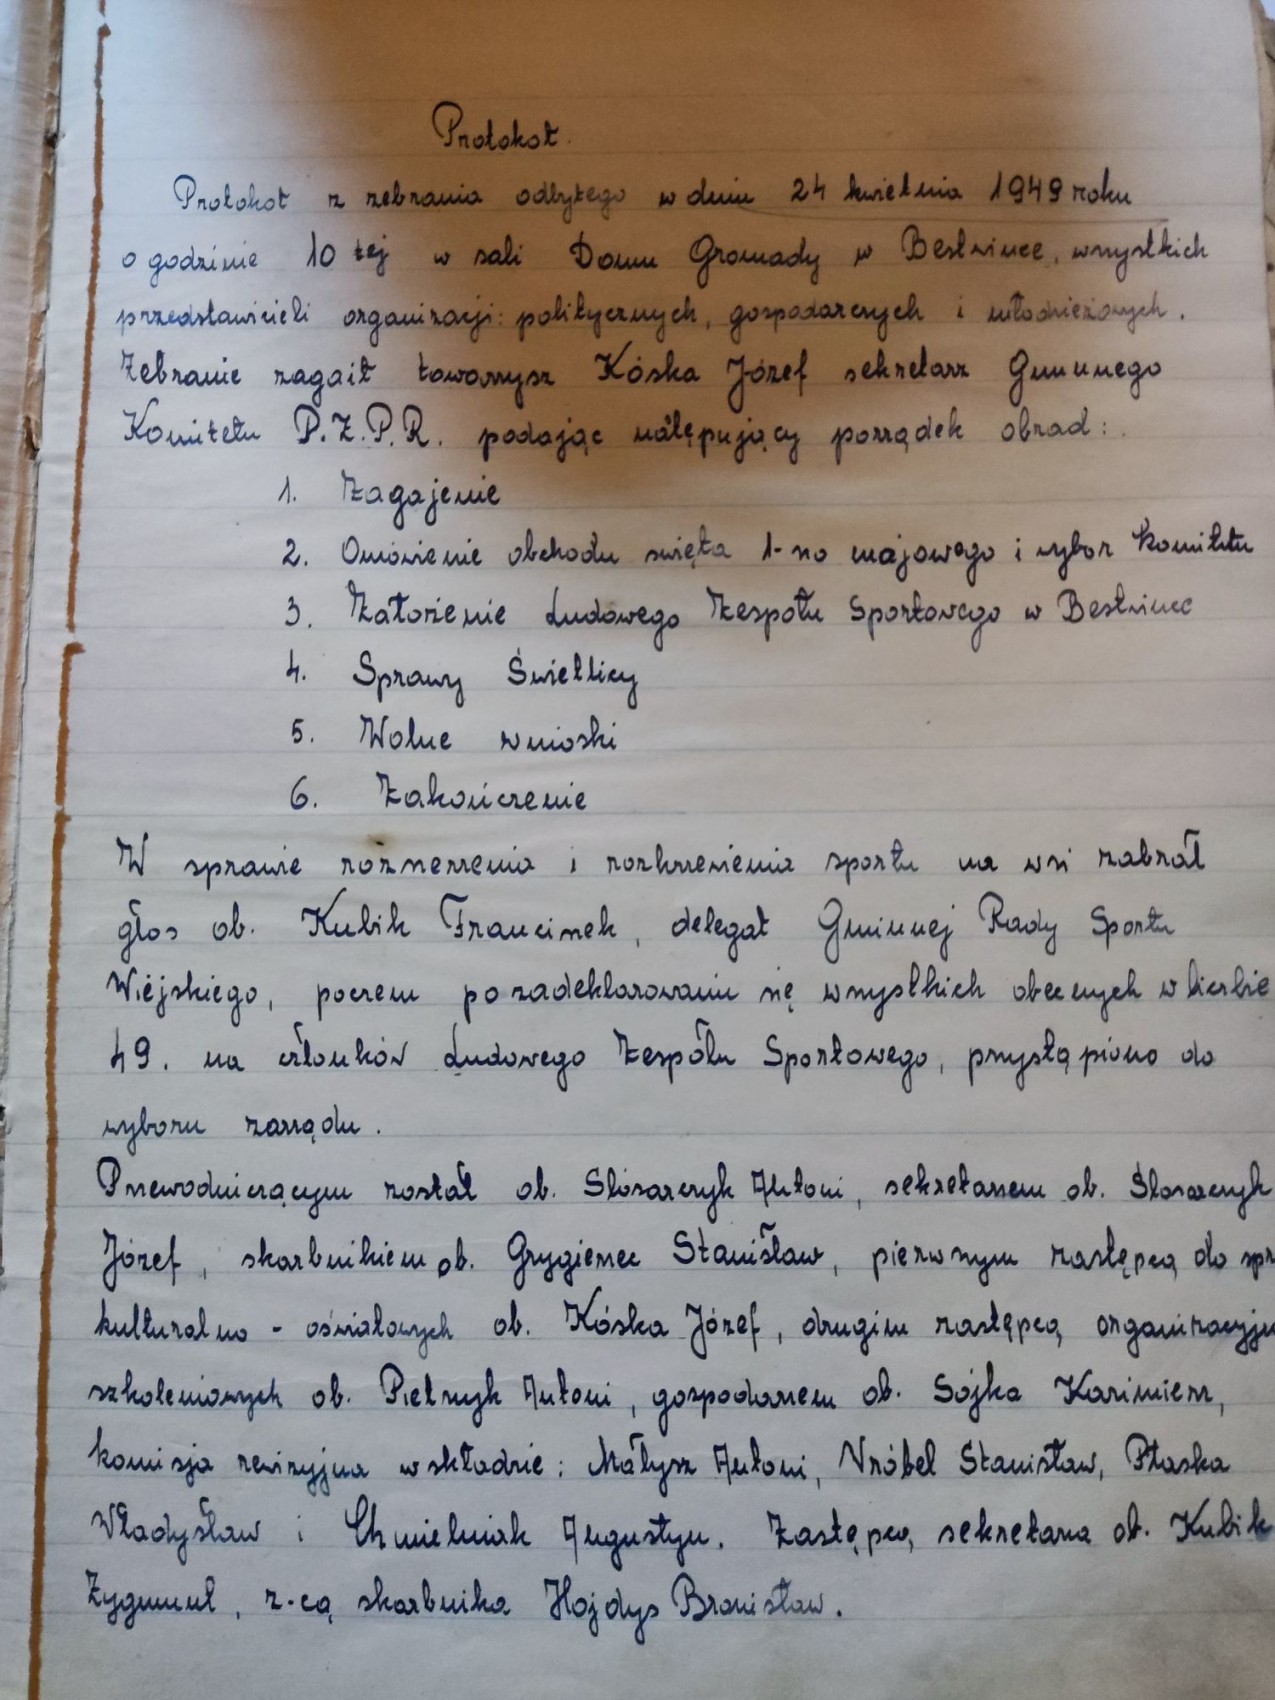 Protokół.
Protokół z zebrania odbytego w dniu 24 kwietnia 1949 roku
o godzinie 10 tej w sali Domu Gromady w Bestwince, wszystkich
przedstawicieli organizacji: politycznych, gospodarczych i młodzieżowych.
Zebranie zagaił towarzysz Kóska Józef sekretarz Gminnego
Komitetu P.Z.P.R. podając natępujący porządek obrad:
1. Zagajenie
2. Omówienie obchodu święta 1-no majowego i wybór Komitetu
3. Założenie Ludowego Zespołu Sportowego w Bestwince
4. Sprawy Świetlicy
5. Wolne wnioski
6. Zakończenie
W sprawie rozszerzenia i rozkrzewienia sportu na wsi zabrał
głos ob. Kubik Franciszek, delegat Gminnej Rady Sportu
Wiejskiego, poczem po zadeklarowaniu się wszystkich obecnych w liczbie
49. na członków Ludowego Zespołu Sportowego, przystąpiono do
wyboru zarządu.
Przewodniczącym został ob. Ślósarczyk Antoni, sekretarzem ob. Ślosarczyk
Józef, skarbnikiem ob. Grygierzec Stanisław, pierwszym zastępcą do spr
kulturalno - oświatowych ob. Kóska Józef, drugim zastępcą organizacyjn
szkoleniowych ob. Pietrzyk Antoni, gospodarzem ob. Sojka Kazimierz,
komisja rewizyjna w składzie: Małysz Antoni, Wróbel Stanisław, Ptaska
Władysław i Chmielniak Augustyn. Zastępcą sekretarza ob. Kubik
Zygmunt, z-cą skarbnika Hojdys Bronisław.